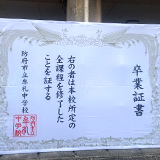 卒業証書
右の者は本校所定の
全課程を修了した
ことを証する
防府市立牟礼中学校